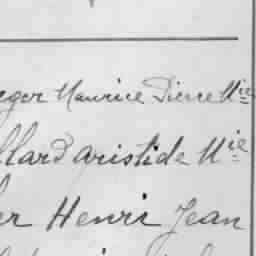 eger Maurice Pierre Mie
llard aristide Mie
er Henri Jean